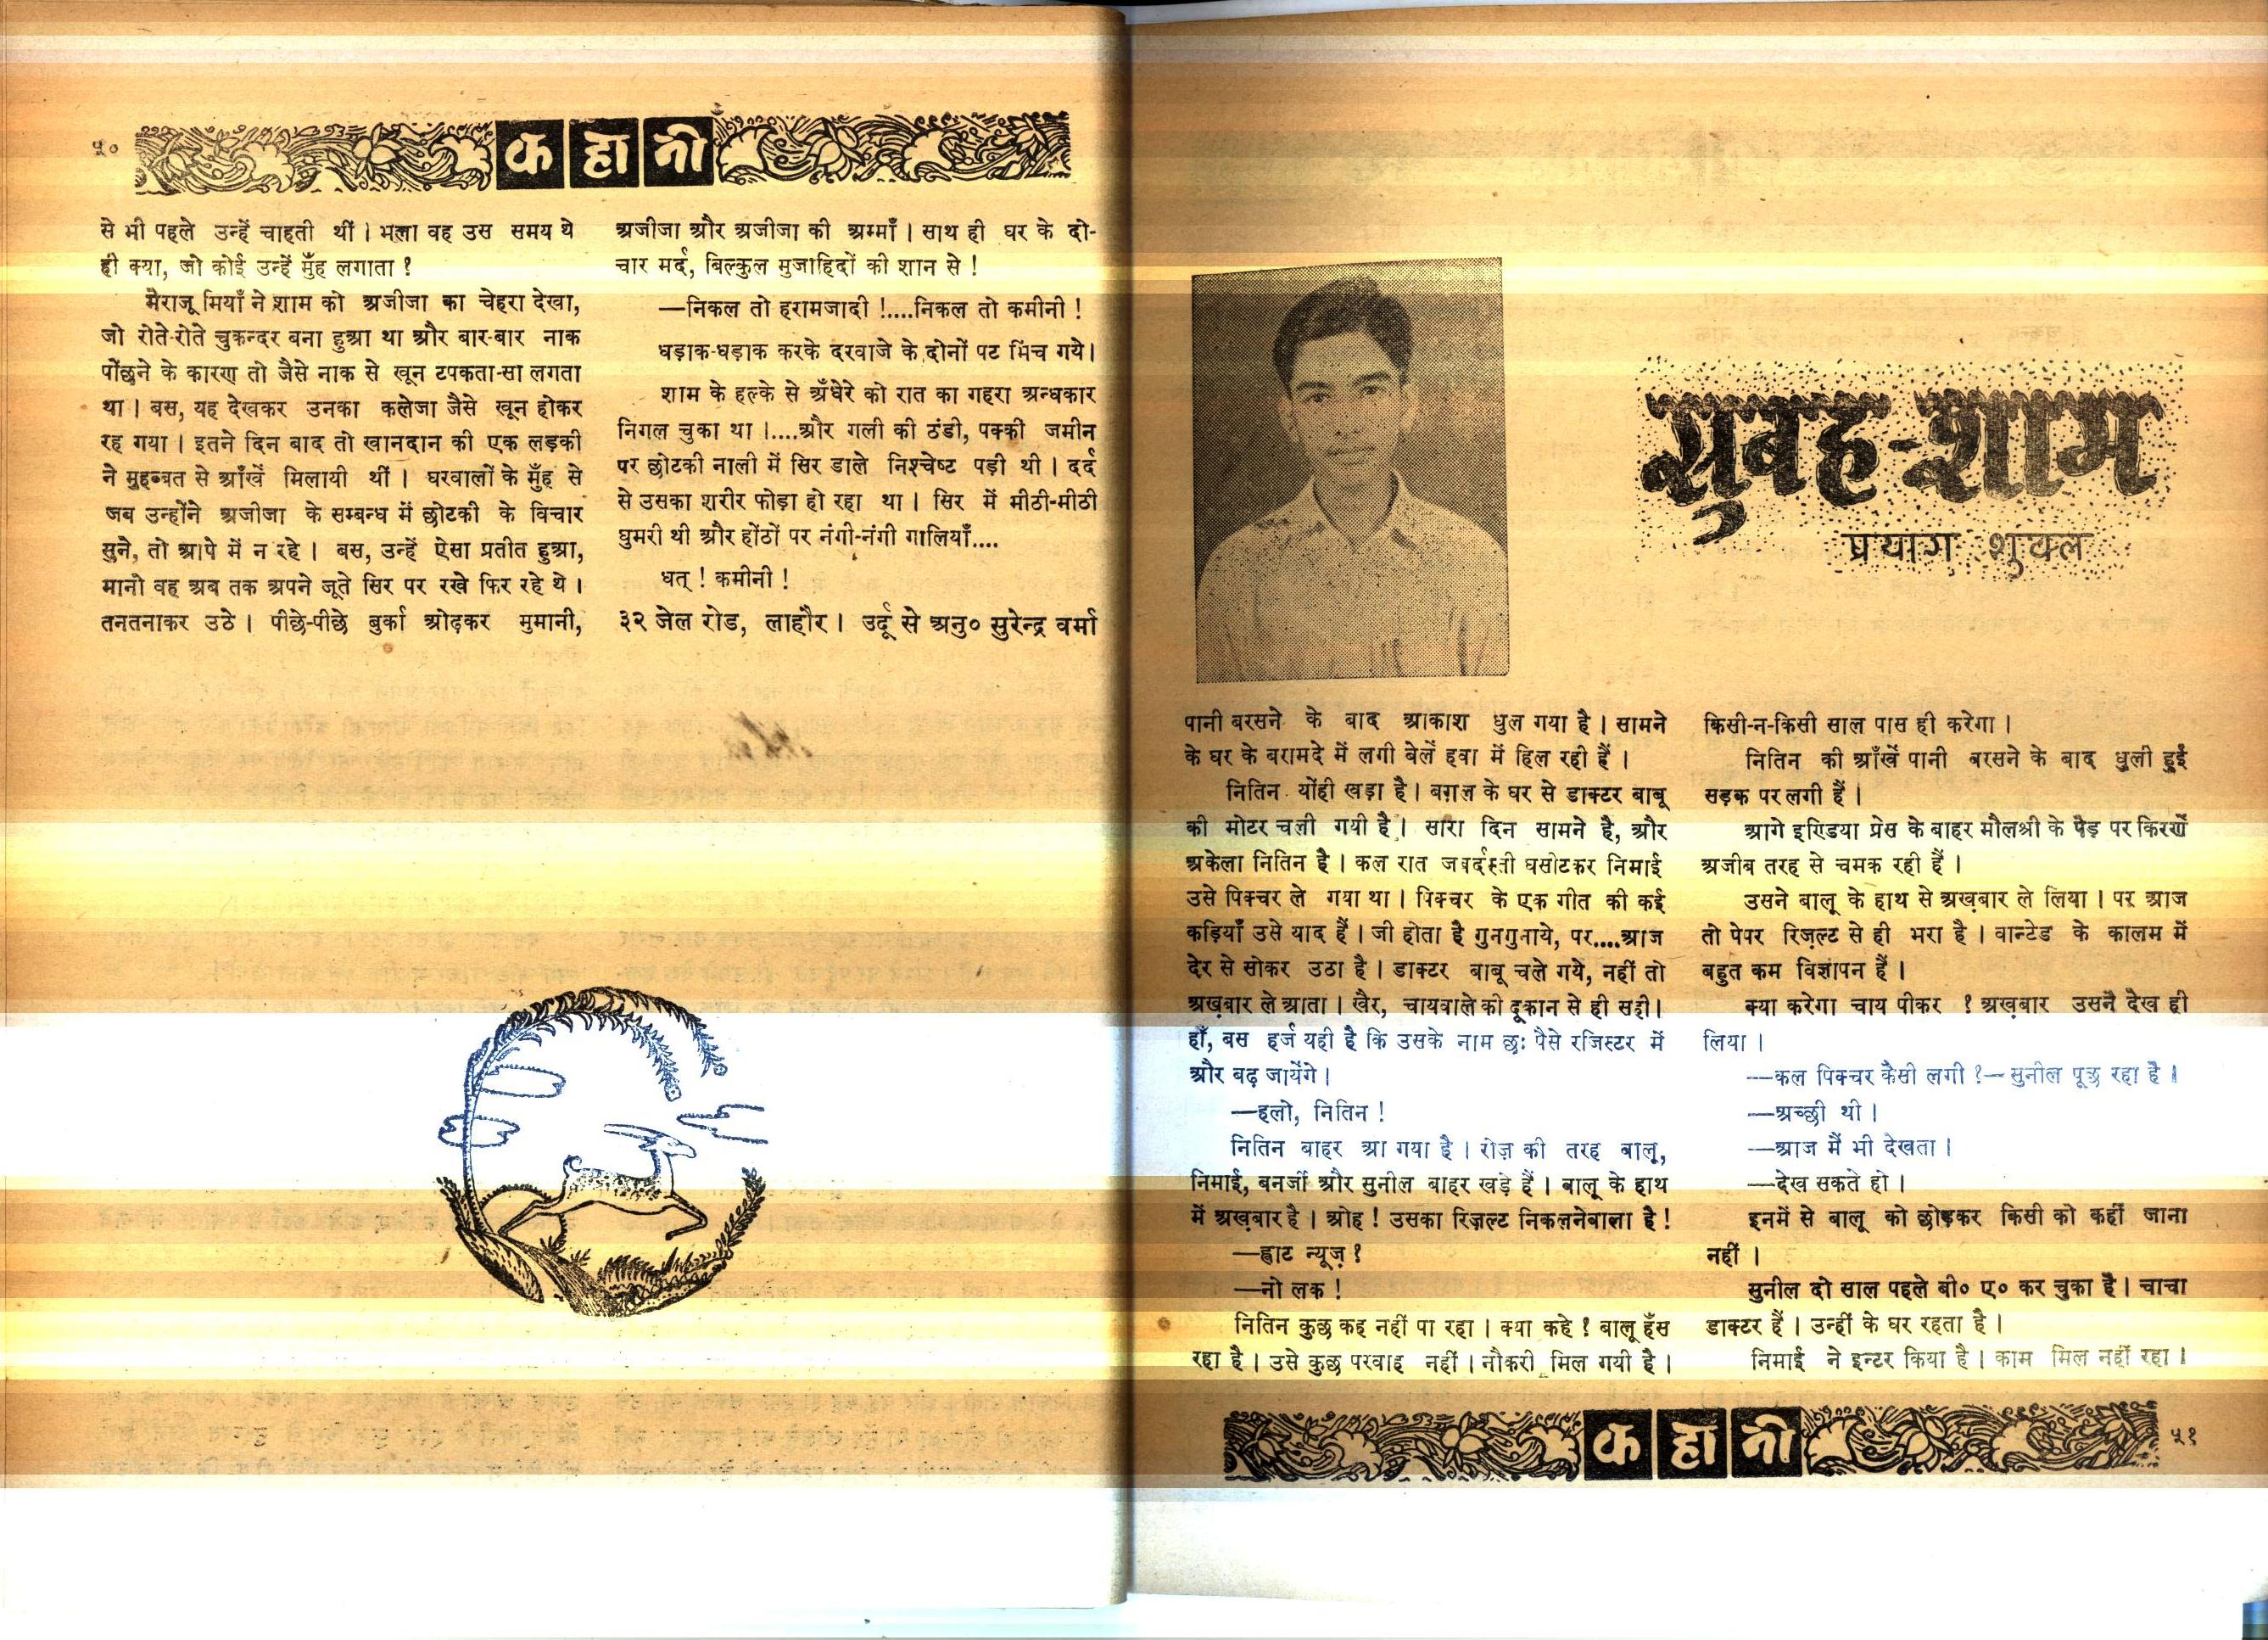 ५०
कहानी
से भी पहले उन्हें चाहती थीं । भला वह उस समय थे
ही क्या, जो कोई उन्हें मुँह लगाता ?
मैराजू मियाँ ने शाम को अजीजा का चेहरा देखा,
जो रोते-रोते चुकन्दर बना हुआ था और बार-बार नाक
पोंछने के कारण तो जैसे नाक से खून टपकता-सा लगता
था । बस, यह देखकर उनका कलेजा जैसे खून होकर
रह गया । इतने दिन बाद तो खानदान की एक लड़की
ने मुहब्बत से आँखें मिलायी थीं । घरवालों के मुँह से
जब उन्होंने अजीजा के सम्बन्ध में छोटकी के विचार
सुने, तो आपे में न रहे । बस, उन्हें ऐसा प्रतीत हुआ,
मानो वह अब तक अपने जूते सिर पर रखे फिर रहे थे ।
तनतनाकर उठे । पीछे-पीछे बुर्का ओढ़कर मुमानी,
अजीजा और अजीजा की अम्माँ । साथ ही घर के दो-
चार मर्द, बिल्कुल मुजाहिदों की शान से !
—निकल तो हरामजादी !....निकल तो कमीनी !
धड़ाक-धड़ाक करके दरवाजे के दोनों पट भिंच गये।
शाम के हल्के से अँधेरे को रात का गहरा अन्धकार
निगल चुका था ।....और गली की ठंडी, पक्की जमीन
पर छोटकी नाली में सिर डाले निश्चेष्ट पड़ी थी । दर्द
से उसका शरीर फोड़ा हो रहा था । सिर में मीठी-मीठी
घुमरी थी और होंठों पर नंगी-नंगी गालियाँ....
धत् ! कमीनी !
३२ जेल रोड, लाहौर । उर्दू से अनु० सुरेन्द्र वर्मा
सुबह-शाम
प्रयाग शुक्ल
पानी बरसने के बाद आकाश धुल गया है । सामने
के घर के बरामदे में लगी बेलें हवा में हिल रही हैं ।
नितिन योंही खड़ा है । बग़ल के घर से डाक्टर बाबू
की मोटर चली गयी है । सारा दिन सामने है, और
अकेला नितिन है । कल रात जबर्दस्ती घसीटकर निमाई
उसे पिक्चर ले गया था । पिक्चर के एक गीत की कई
कड़ियाँ उसे याद हैं । जी होता है गुनगुनाये, पर....आज
देर से सोकर उठा है । डाक्टर बाबू चले गये, नहीं तो
अख़बार ले आता । खैर, चायवाले की दूकान से ही सही।
हाँ, बस हर्ज यही है कि उसके नाम छः पैसे रजिस्टर में
और बढ़ जायेंगे ।
—हलो, नितिन !
नितिन बाहर आ गया है । रोज़ की तरह बालू,
निमाई, बनर्जी और सुनील बाहर खड़े हैं । बालू के हाथ
में अख़बार है । ओह ! उसका रिज़ल्ट निकलनेवाला है !
—ह्वाट न्यूज़ ?
—नो लक !
नितिन कुछ कह नहीं पा रहा । क्या कहे ? बालू हँस
रहा है । उसे कुछ परवाह नहीं । नौकरी मिल गयी है ।
किसी-न-किसी साल पास ही करेगा ।
नितिन की आँखें पानी बरसने के बाद धुली हुई
सड़क पर लगी हैं ।
आगे इण्डिया प्रेस के बाहर मौलश्री के पेड़ पर किरणें
अजीब तरह से चमक रही हैं ।
उसने बालू के हाथ से अख़बार ले लिया । पर आज
तो पेपर रिज़ल्ट से ही भरा है । वान्टेड के कालम में
बहुत कम विज्ञापन हैं ।
क्या करेगा चाय पीकर ? अख़बार उसने देख ही
लिया ।
—कल पिक्चर कैसी लगी ?—सुनील पूछ रहा है ।
—अच्छी थी ।
—आज मैं भी देखता ।
—देख सकते हो ।
इनमें से बालू को छोड़कर किसी को कहीं जाना
नहीं ।
सुनील दो साल पहले बी० ए० कर चुका है । चाचा
डाक्टर हैं । उन्हीं के घर रहता है ।
निमाई ने इन्टर किया है । काम मिल नहीं रहा ।
कहानी
५१